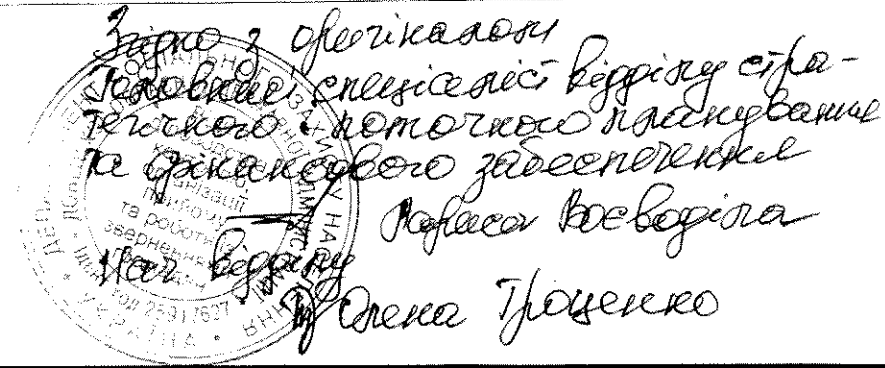 Згідно з оригіналом
Головний спеціаліст відділу стра-
тегічного і поточного планування
та фінансового забезпечення
Лариса Воєводіна
Нач відділу
Олена Троценко
організацій
прийому
та роботи
зверненнями
код 25917627
УКРАЇНА